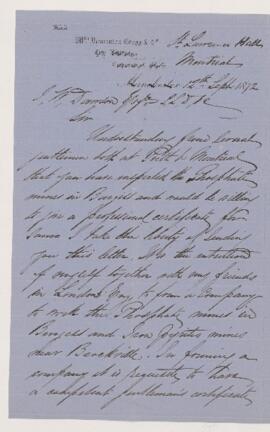 St. Lawrence Hall
Montreal
12th Sept 1872
J. W. Dawson Esq LLD &c
Sir
Understanding from several
gentlemen both at Perth & Montreal
that you have inspected the Phosphate
mines in Burgess and would be willing
to give a professional certificate for
same I take the liberty of sending
you this letter. It is the intention
of myself together with my friends
in London Eng. to form a Company
to work the Phosphate mines in
Burgess and Iron Pyrites mines
near Brockville. In forming a
company it is requisite to have
a competent gentleman's certificate